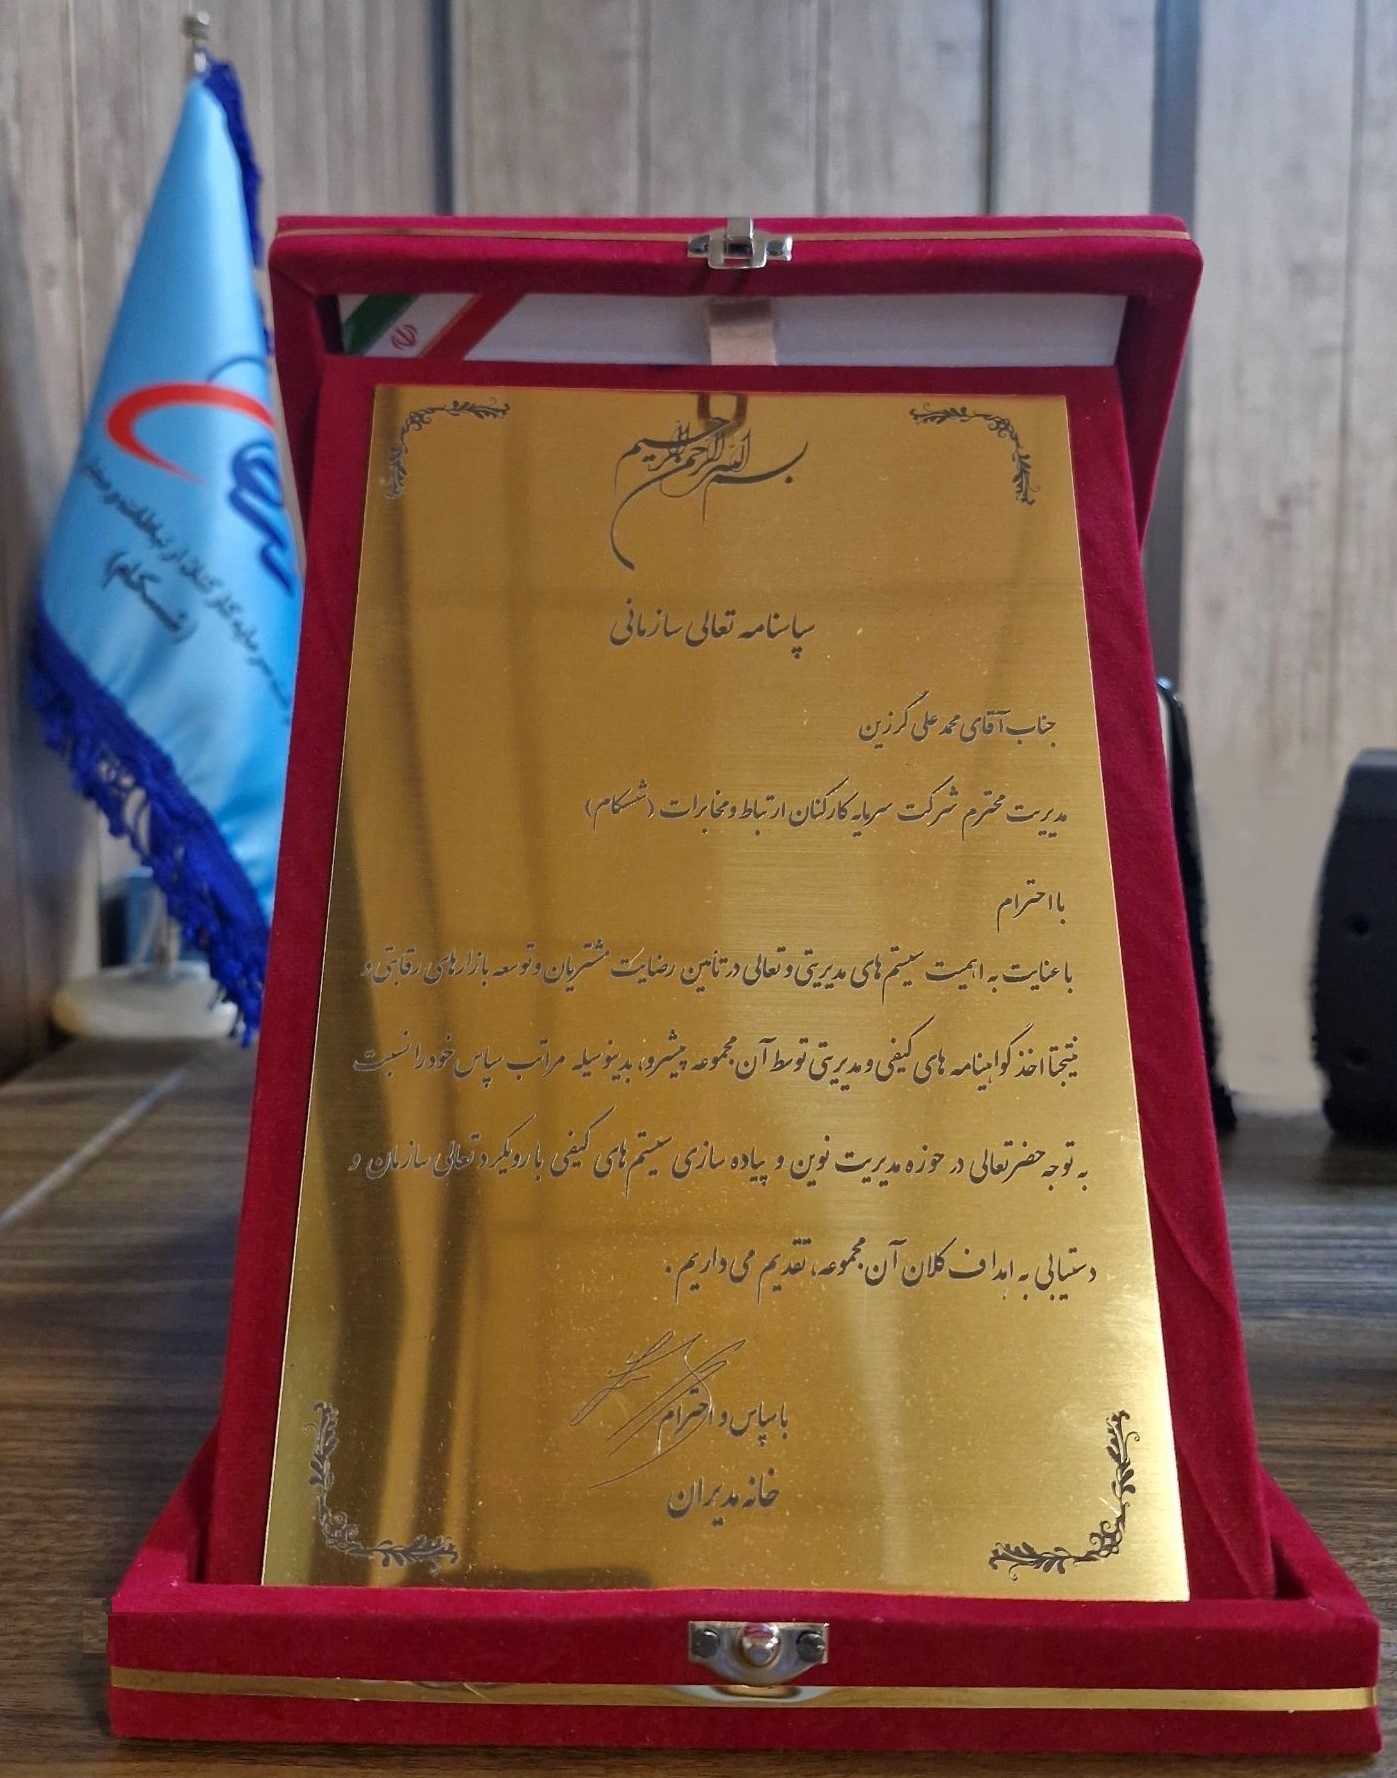 بسم الله الرحمن الرحیم
سپاسنامه تعالی سازمانی
جناب آقای محمد علی گرزین
مدیریت محترم شرکت سرمایه کارکنان ارتباط و مخابرات (شسکام)
با احترام
با عنایت به اهمیت سیستم های مدیریتی و تعالی در تأمین رضایت مشتریان و توسعه بازارهای رقابتی و
نتیجتا اخذ گواهینامه های کیفی و مدیریتی توسط آن مجموعه پیشرو، بدینوسیله مراتب سپاس خود را نسبت
به توجه حضرتعالی در حوزه مدیریت نوین و پیاده سازی سیستم های کیفی با رویکرد تعالی سازمان و
دستیابی به اهداف کلان آن مجموعه، تقدیم می داریم.
با سپاس و احترام
خانه مدیران
سرمایه کارکنان ارتباطات و
(شسکام)